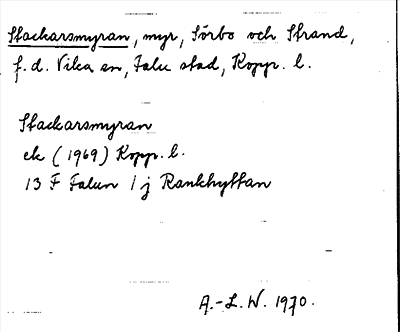 Stackarsmyran, myr, Sörbo och Strand,
f. d. Vika sn, Falu stad, Kopp. l.
Stackarsmyran
ek (1969) Kopp. l.
13 F Falun 1 j Rankhyttan
A.-L. W. 1970.